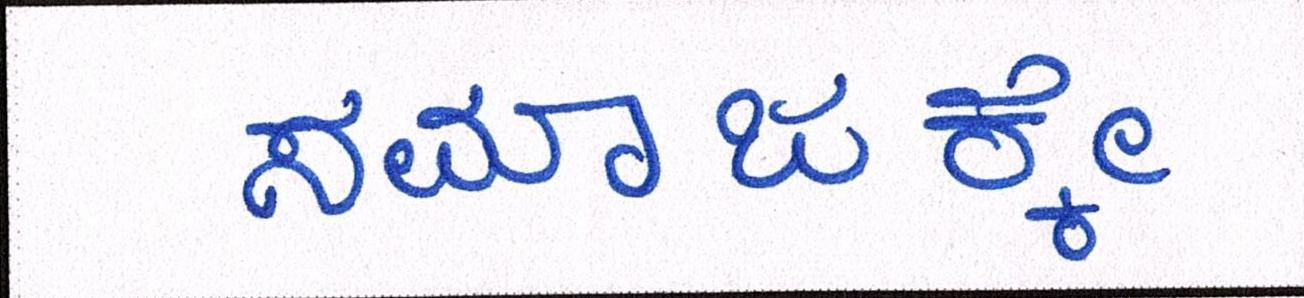 ಸಮಾಜಕ್ಕೆ